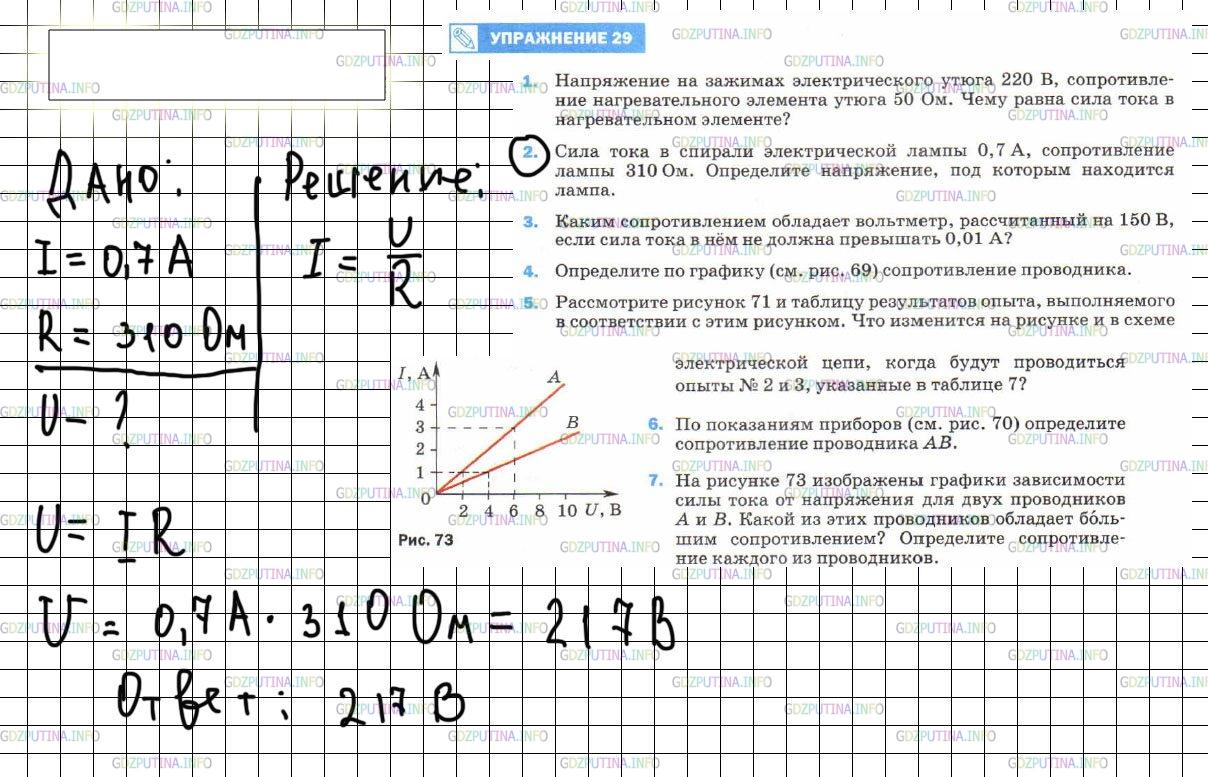 УПРАЖНЕНИЕ 29
1. Напряжение на зажимах электрического утюга 220 В, сопротивле-
ние нагревательного элемента утюга 50 Ом. Чему равна сила тока в
нагревательном элементе?
2. Сила тока в спирали электрической лампы 0,7 А, сопротивление
лампы 310 Ом. Определите напряжение, под которым находится
лампа.
3. Каким сопротивлением обладает вольтметр, рассчитанный на 150 В,
если сила тока в нём не должна превышать 0,01 А?
4. Определите по графику (см. рис. 69) сопротивление проводника.
5. Рассмотрите рисунок 71 и таблицу результатов опыта, выполняемого
в соответствии с этим рисунком. Что изменится на рисунке и в схеме
электрической цепи, когда будут проводиться
опыты № 2 и 3, указанные в таблице 7?
6. По показаниям приборов (см. рис. 70) определите
сопротивление проводника АВ.
7. На рисунке 73 изображены графики зависимости
силы тока от напряжения для двух проводников
А и В. Какой из этих проводников обладает бо́ль-
шим сопротивлением? Определите сопротивле-
ние каждого из проводников.
I, А
A
4
B
3
2
1
0
2 4 6 8 10 U, В
Рис. 73
Дано:
I = 0,7 А
R = 310 Ом
U - ?
Решение:
I = U/R
U = I R
U = 0,7 А · 310 Ом = 217 В
Ответ: 217 В
GDZPUTINA.INFO